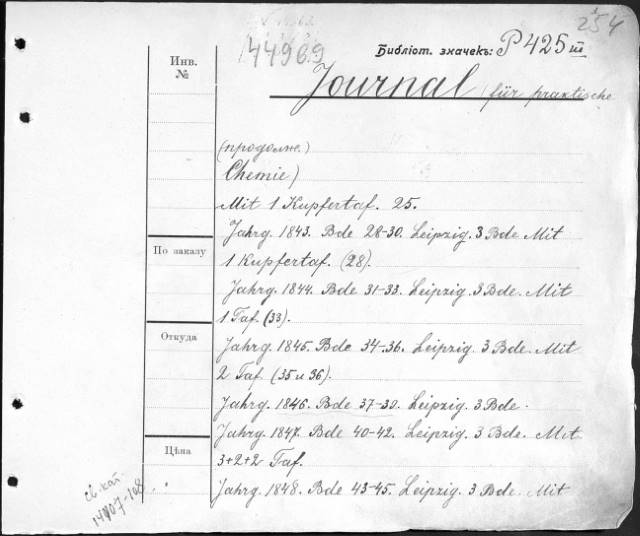 254
44969
Библіот. значекъ: P 425 III
Инв.
№
Journal (für praktische
(продолж.)
Chemie)
Mit 1 Kupfertaf. 25.
Jahrg. 1843. Bde 28-30. Leipzig. 3 Bde. Mit
По заказу
1 Kupfertaf. (28).
Jahrg. 1844. Bde 31-33. Leipzig. 3 Bde. Mit
1 Taf. (33).
Откуда
Jahrg. 1845. Bde 34-36. Leipzig. 3 Bde. Mit
2 Taf. (35 и 36).
Jahrg. 1846. Bde 37-39. Leipzig. 3 Bde.
Jahrg. 1847. Bde 40-42. Leipzig. 3 Bde. Mit
Цѣна
3+2+2 Taf.
Jahrg. 1848. Bde 43-45. Leipzig. 3 Bde. Mit
св. кат.